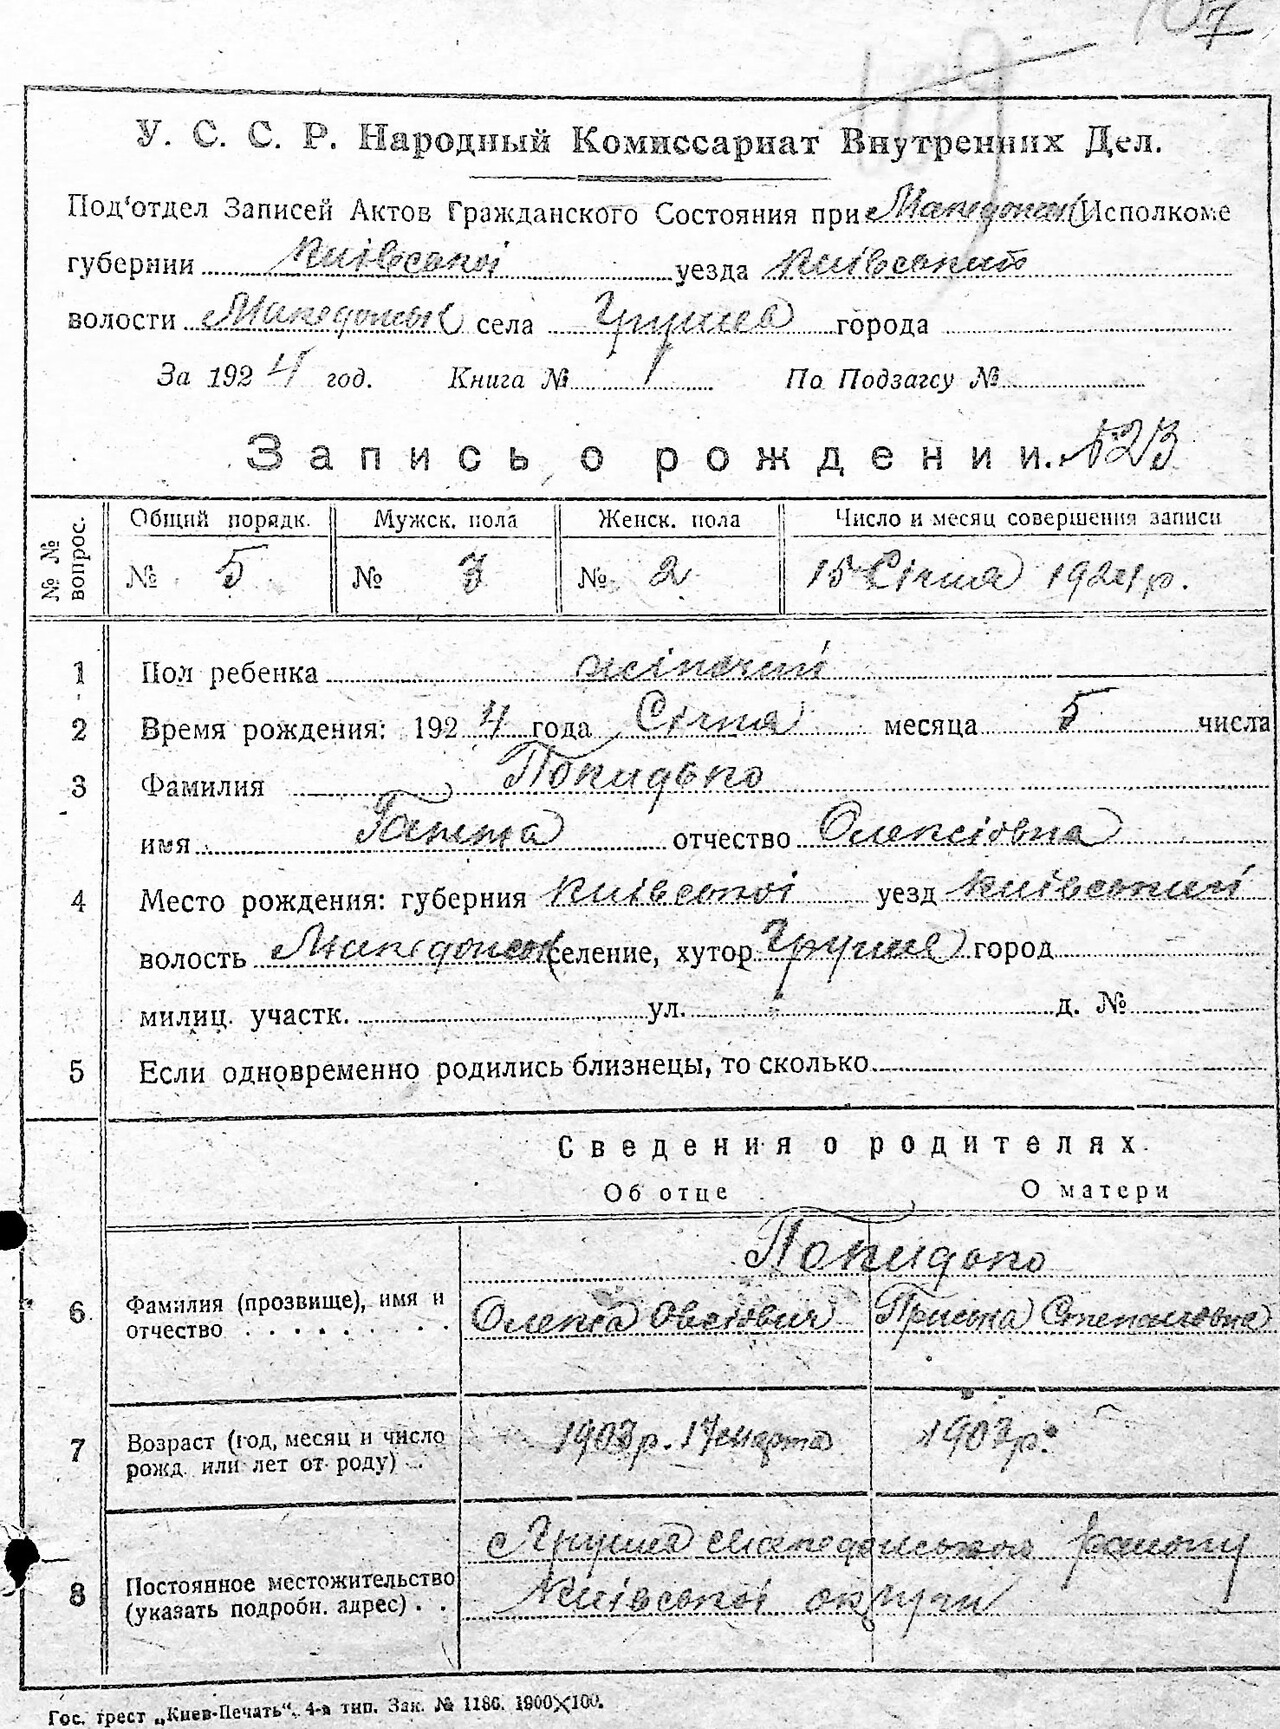 107
109
У. С. С. Р. Народный Комиссариат Внутренних Дел.
Под‘отдел Записей Актов Гражданского Состояния при Македонск Исполкоме
губернии Київської уезда Київський
волости Македонськ села Грушев города
За 1924 год. Книга № По Подзагсу №
Запись о рождении. 523
№ № вопрос. Общий порядк. Мужск. пола Женск. пола Число и месяц совершения записи
№ 5 № 3 № 2 15 Січня 1924 р.
1 Пол ребенка жіночий
2 Время рождения: 1924 года Січня месяца 5 числа
3 Фамилия Попидько
имя Ганна отчество Олексіовна
4 Место рождения: губерния Київської уезд Київський
волость Македонськ селение, хутор Грушев город
милиц. участк. ул. д. №
5 Если одновременно родились близнецы, то сколько
Сведения о родителях.
Об отце О матери
Попидько
6 Фамилия (прозвище), имя и Олекса Овсіович Приська Степановна
отчество
7 Возраст (год, месяц и число 1903 р. 17 марта 1903 р.
рожд. или лет от роду)
с Грушев Македонського району
8 Постоянное местожительство Київської округи
(указать подробн. адрес)
Гос. трест „Киев-Печать“, 4-я тип. Зак. № 1186. 1900×100.